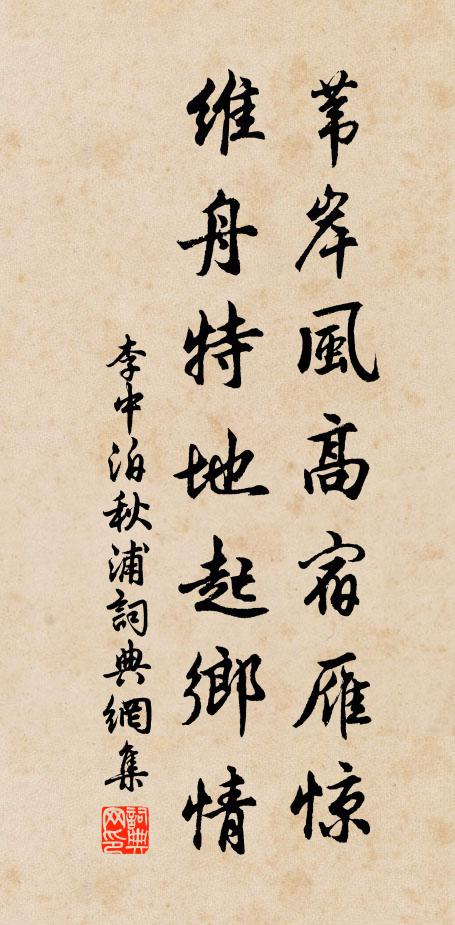 苇岸風高宿雁惊
维舟特地起鄉情
李中泊秋浦詞典網集
詞典网印